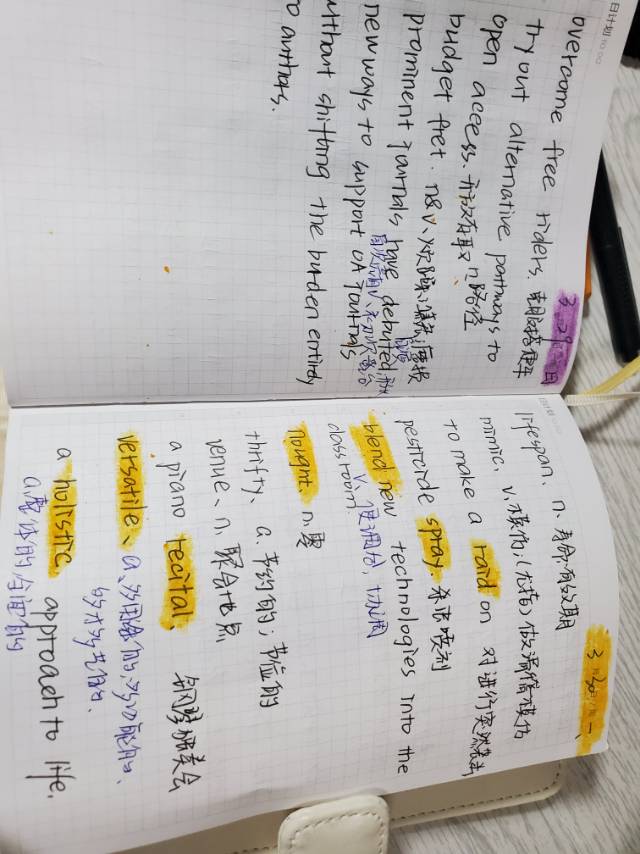 日计划
3.29 日
overcome free riders. 搭便车
try out alternative pathways to
open access. n.路径
budget fret. n&v.
prominent journals have debuted
new ways to support OA journals
without shifting the burden entirely
to authors.
3.30 一
lifespan. n. 寿命,有效期
mimic. v.模仿;(尤指)做滑稽模仿
to make a raid on 对进行突然袭击
pesticide spray. 杀虫喷剂
blend new technologies into the
classroom. v.使调和,协调
nought. n.零
thrifty. a.节约的;节俭的
venue. n.聚会地点
a piano recital. 钢琴独奏会
versatile. a.多用途的,多功能的,
多才多艺的.
a holistic approach to life.
a.整体的,全面的